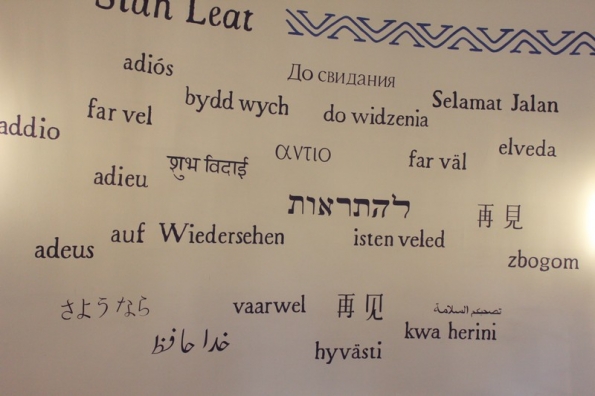 Slan Leat
adiós
До свидания
bydd wych
Selamat Jalan
far vel
do widzenia
addio
elveda
शुभ विदाई
αντιο
far väl
adieu
להתראות
再見
auf Wiedersehen
isten veled
adeus
zbogom
さようなら
vaarwel
再见
تصحبكم السلامة
kwa herini
خدا حافظ
hyvästi